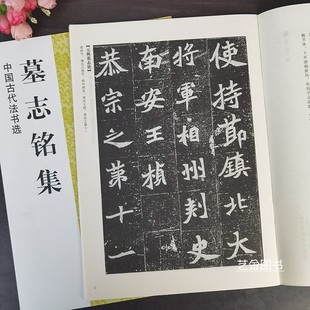 墓志铭集
中国古代法书选
使持節鎮北大
將軍相州刺史
南安王楨
恭宗之第十一